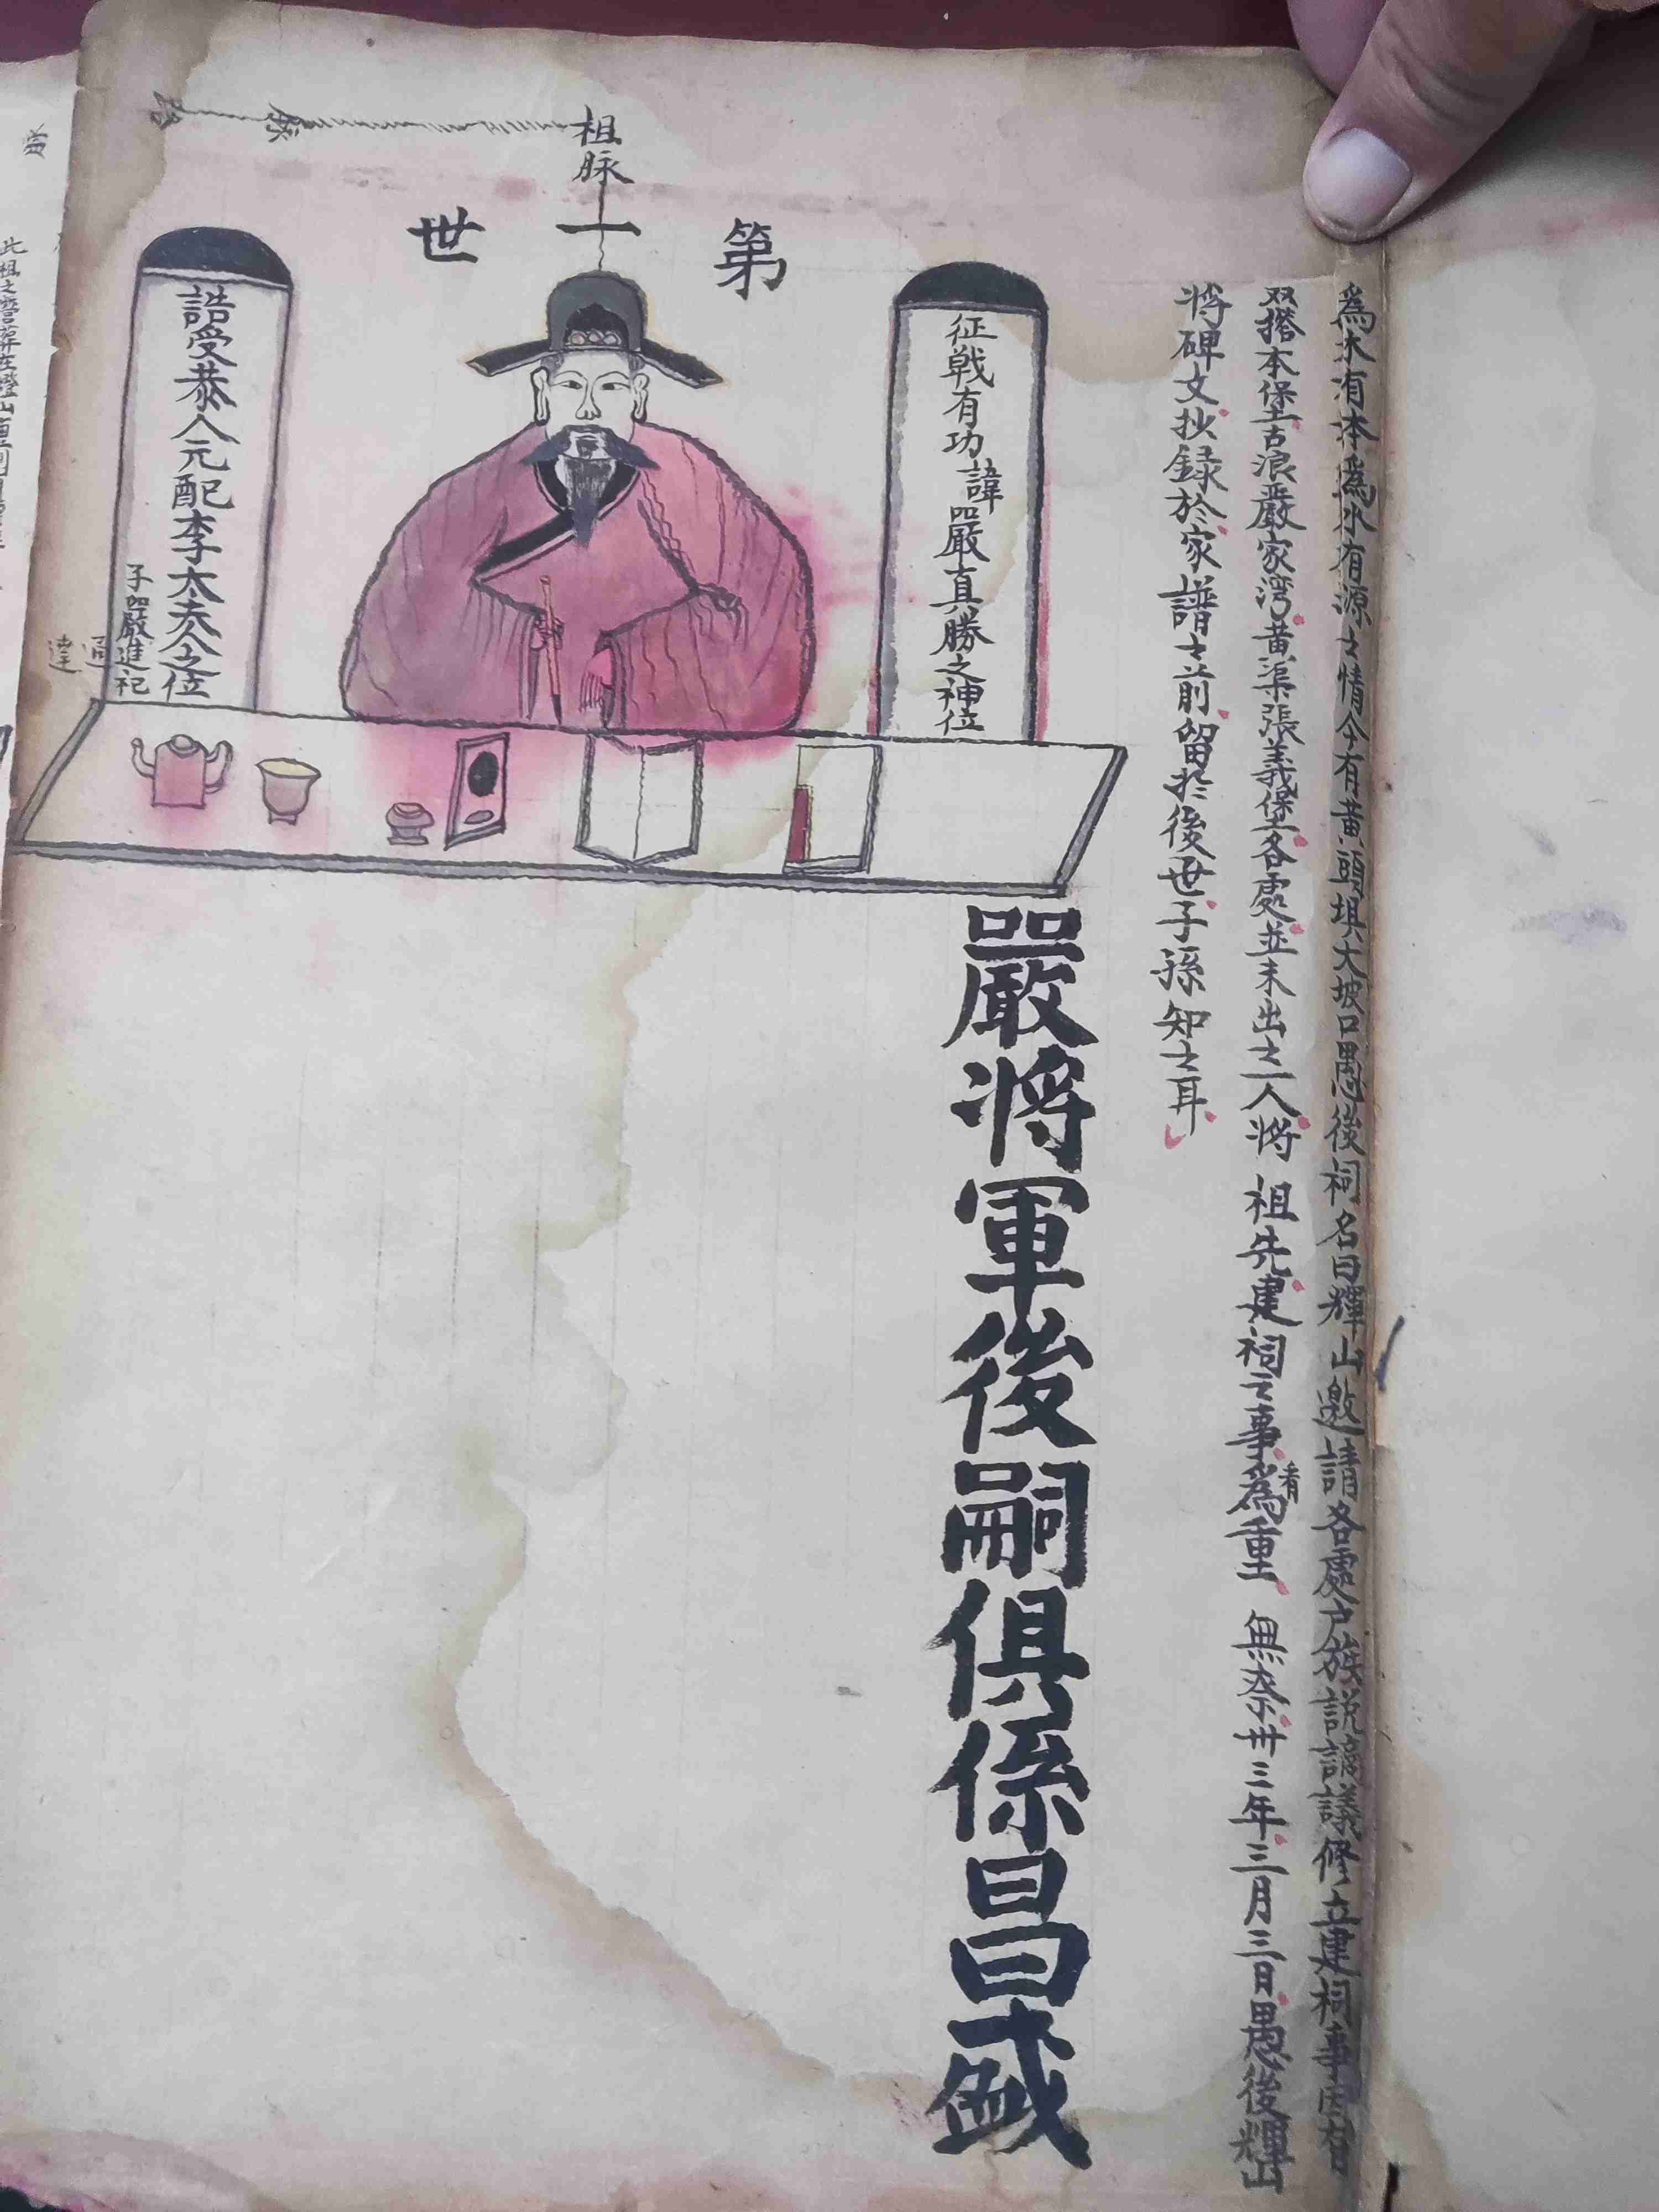 為木有本為水有源之情今有黃頭埧大坡口愚後祠名曰輝山邀請各處户族説論議修立建祠事因有
双搭本堡古浪嚴家湾黄渠張義堡各處並未出之人將祖先建祠之事看為重無奈卅三年三月三日愚後輝山
將碑文抄録於家譜之前留於後世子孫知之耳
嚴將軍後嗣俱係昌盛
祖脉
第一世
征戰有功諱嚴真勝之神位
誥受恭人元配李太夫人之位
子嚴進祀
達